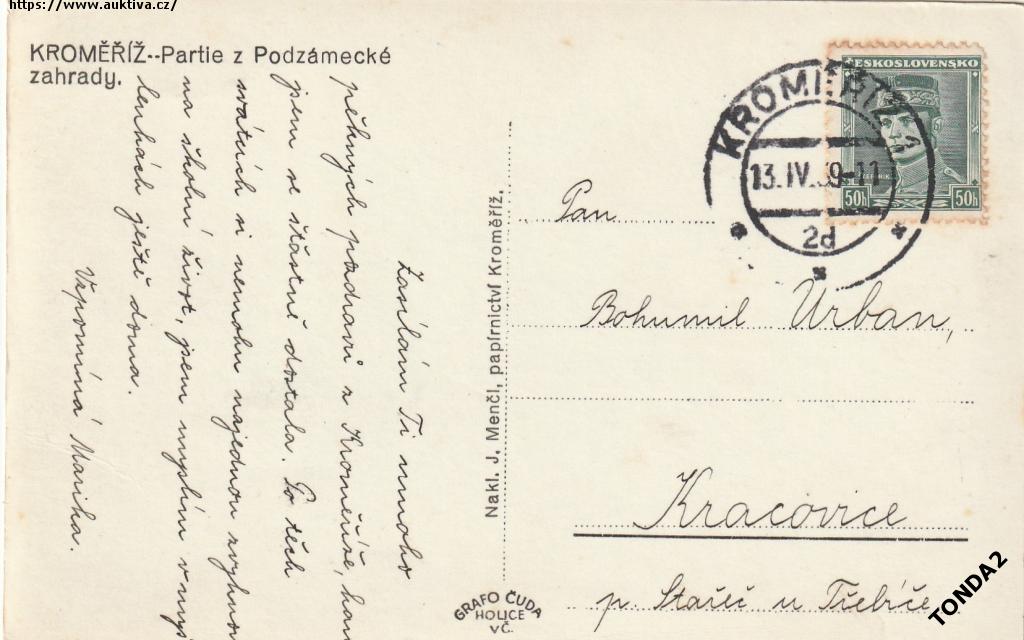 https://www.auktiva.cz/
KROMĚŘÍŽ--Partie z Podzámecké
zahrady.
Zasílám Ti mnoho
pěkných pozdravů z Kroměříže, kam
jsem se šťastně dostala. Po těch
svátcích si nemohu najednou zvyknout
na školní život, jsem myslím v myš
lenkách ještě doma.
Vzpomíná Mařka.
Nakl. J. Menčl, papírnictví Kroměříž.
GRAFO ČUDA
HOLICE
VČ.
ČESKOSLOVENSKO
50h 50h
KROMĚŘÍŽ 1
13.IV.39-11
2d
Pan
Bohumil Urban,
Kracovice
p. Stařeč u Třebíče
TONDA2